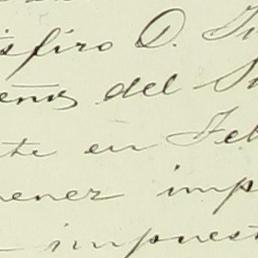 sfiro D. Ju
eños del Su
te en Feb
ener imp
impuest